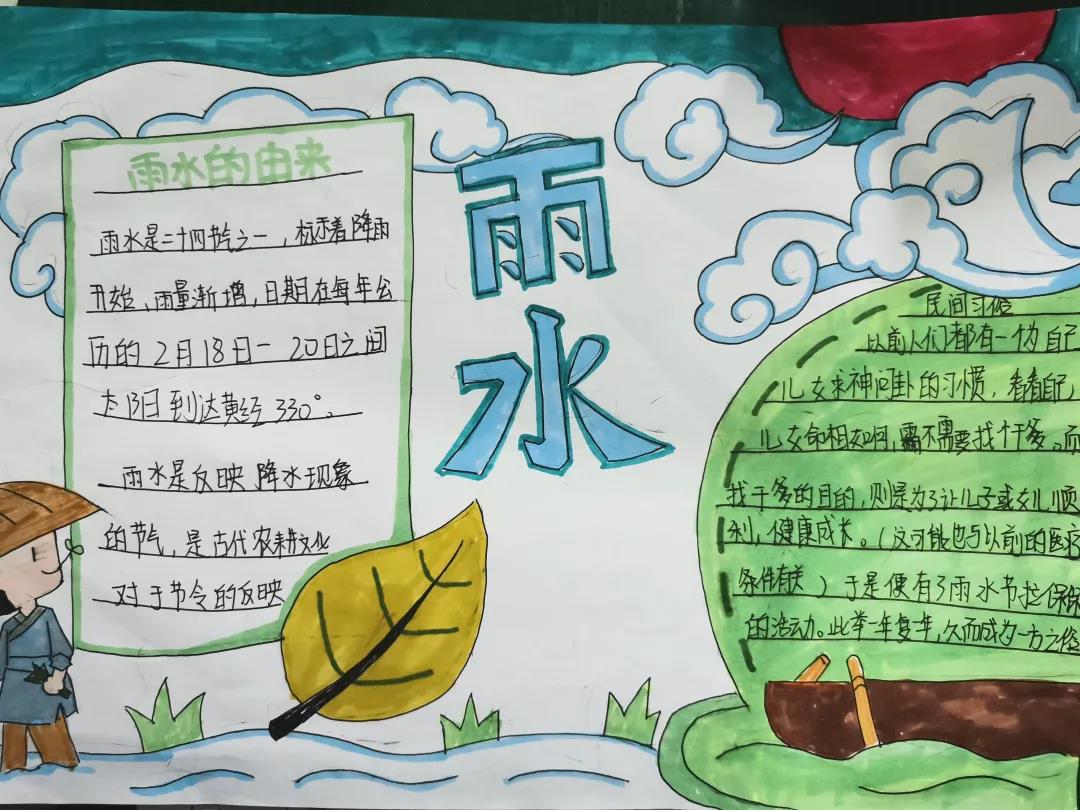 雨水的由来
雨水是二十四节气之一，标示着降雨
开始、雨量渐增，日期在每年公
历的2月18日一20日之间
太阳到达黄经330°。
雨水是反映降水现象
的节气，是古代农耕文化
对于节令的反映
雨水
民间习俗
以前人们都有一个为自己
儿女求神问卦的习惯，看看自己
儿女命相如何，需不需要找个干爹。而
找干爹的目的，则是为了让儿子或女儿顺
利，健康成长。（这可能也与以前的医疗
条件有关）于是便有了雨水节拉保保
的活动。此举一年复一年，久而成为一方之俗